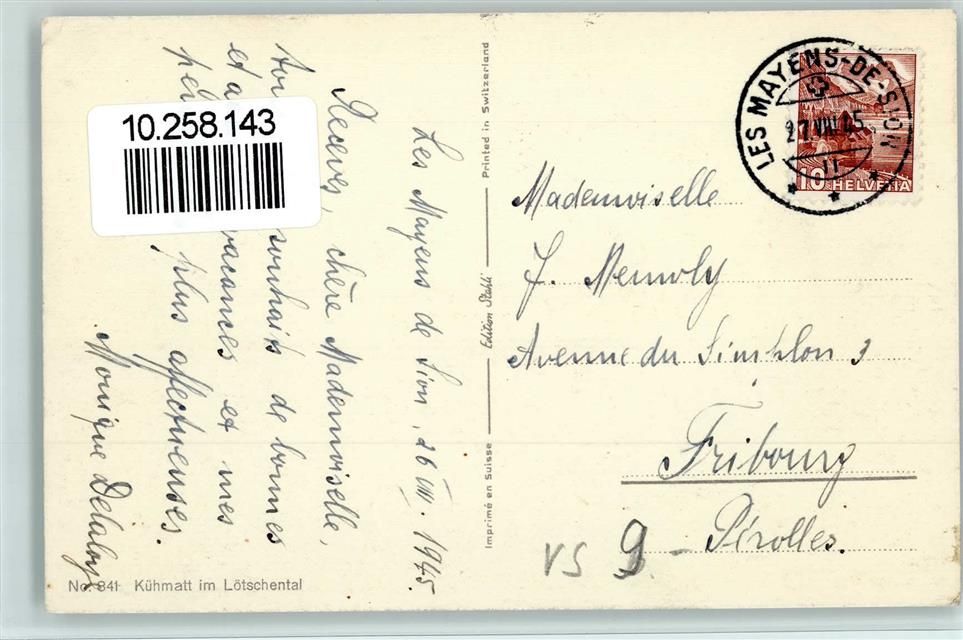 10.258.143
Les Mayens de Sion, 26 VIII. 1945.
Recevez, chère Mademoiselle,
souhaits de bonnes
et vacances et mes
plus affectueuses.
Monique Delaloye
Printed in Switzerland
Edition Stehli
Imprimé en Suisse
LES MAYENS-DE-SION
27.VIII.45
10 HELVETIA
Mademoiselle
J.
Avenue du Simplon 3
Fribourg
Pérolles.
VS 9
No. 841 Kühmatt im Lötschental